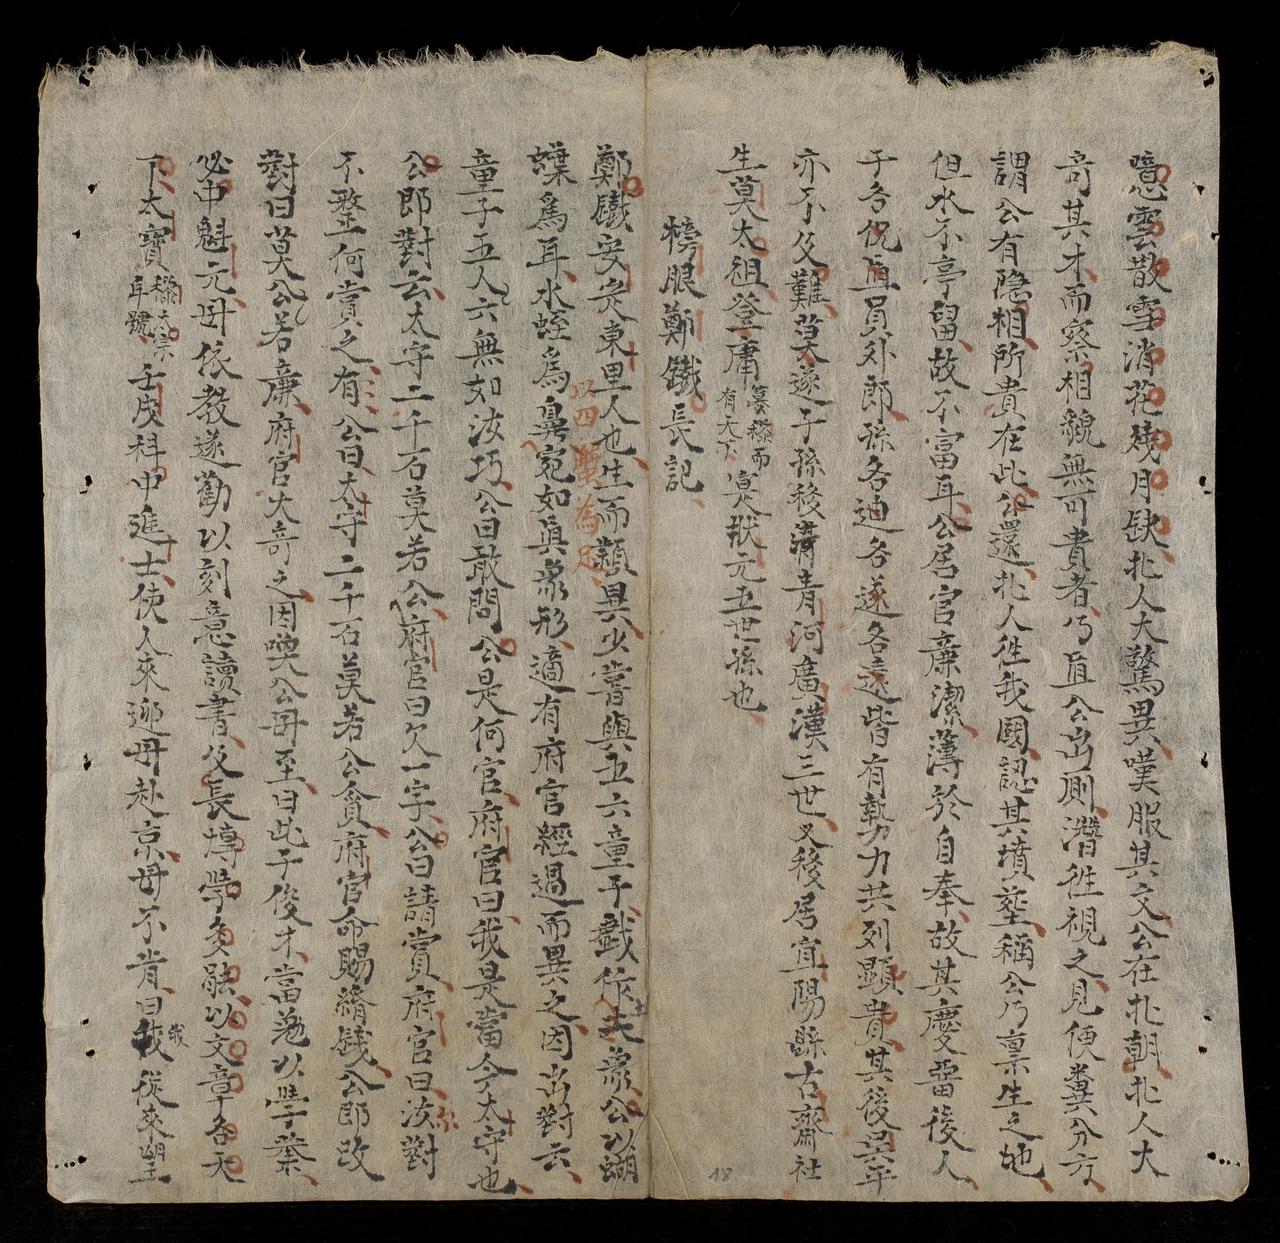 噫雲散雪消花殘月缺北人大驚異嘆服其文公在北朝北人大
奇其才而察相貌無可貴者乃直公出厠潛徃視之見便糞分方
謂公有隐相所貴在此公還北人徃我國認其墳塋稱公乃禀生之地
但水不亭留故不富耳公居官廉潔薄於自奉故其慶畱後人
于各侃直員外郎孫各迪各遂各遠皆有勢力共列顯貴其後吳平
亦不及難莫遂子孫移清青河廣漢三世又移居宜陽縣古齋社
生莫太祖登庸篡黎而有天下寔狀元五世孫也
榜眼鄭鐵長記
鄭鐵安定東里人也生而頴異少嘗與五六童子戱作土象公以蝴
蝶爲耳水蛭爲鼻以四蟹為足宛如眞象形適有府官經過而異之因出對云
童子五人六無如汝巧公曰敢問公是何官府官曰我是當今太守也
公郎對云太守二千石莫若公府官曰欠一字公曰請賞府官曰汝對
不整何賞之有公曰太守二千石莫若公貪府官命賜緡錢公郎改
對曰莫公若廉府官大奇之因喚公母至曰此子俊才當勉以學業
必中魁元毋依教遂勸以刻意讀書及長博學多能以文章名天
下太寶黎太宗年號壬戌科中進士使人來迎毋赴京母不肯曰我從來望